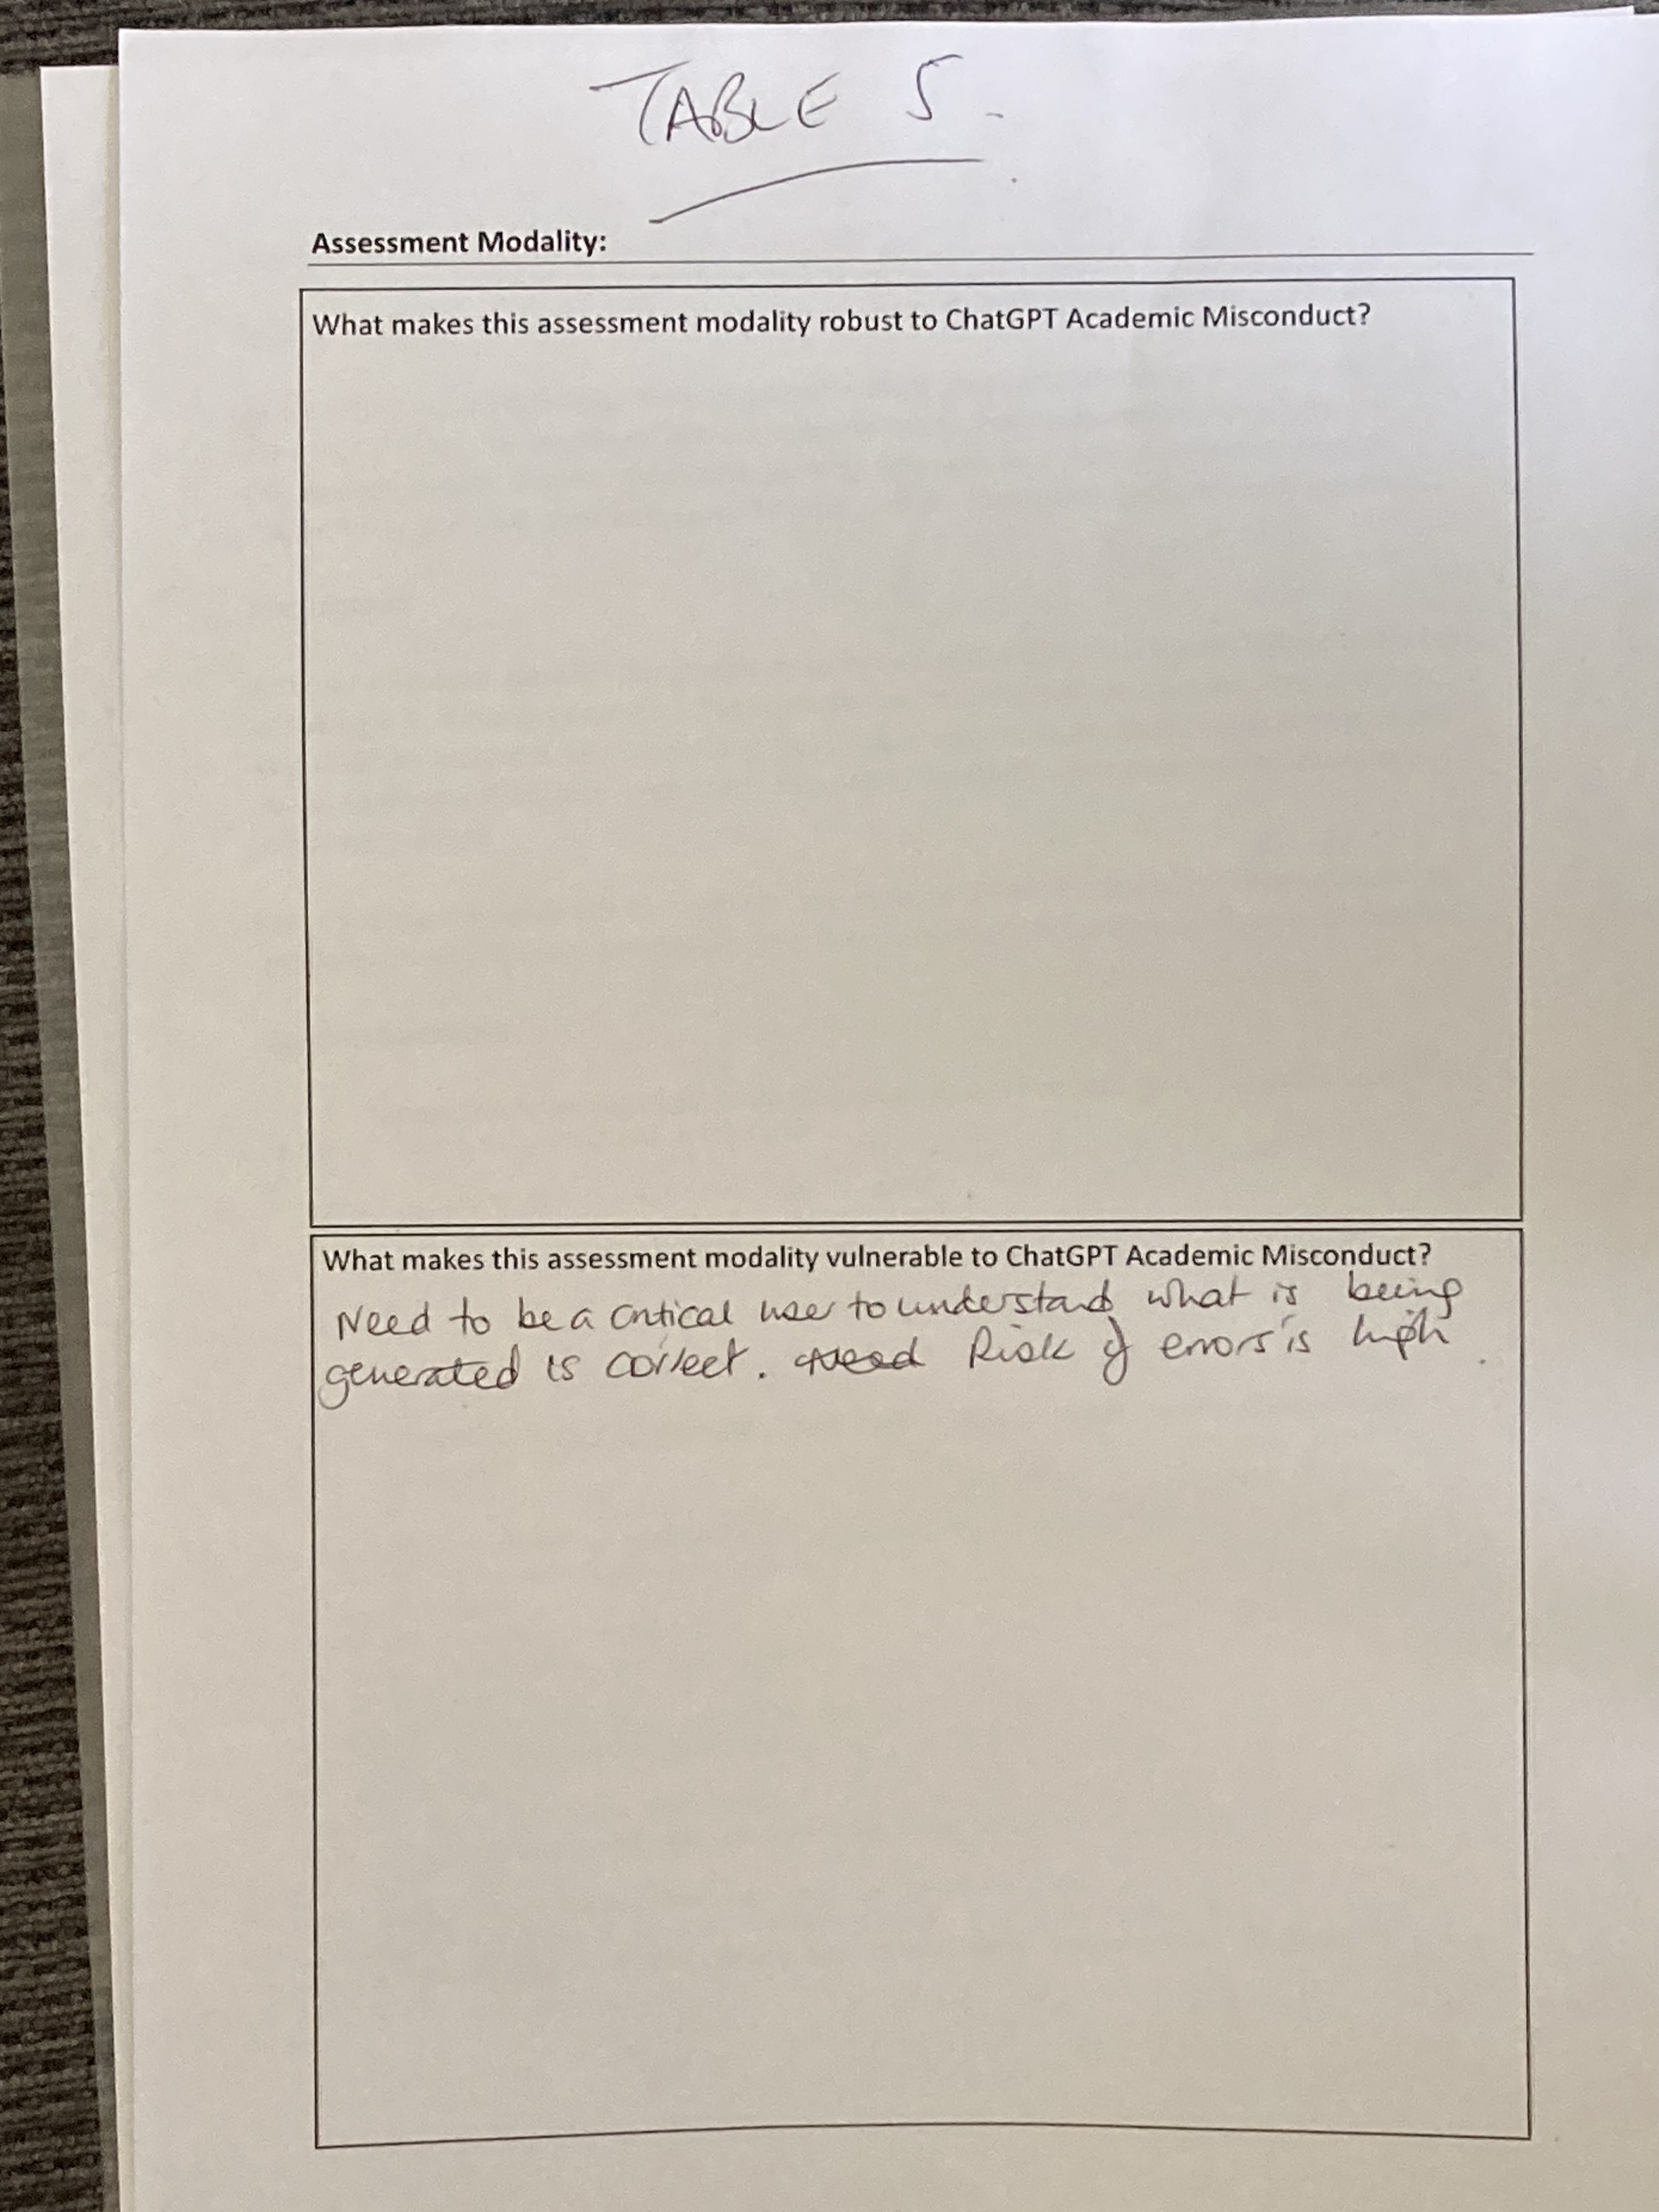 TABLE 5.
Assessment Modality:
What makes this assessment modality robust to ChatGPT Academic Misconduct?
What makes this assessment modality vulnerable to ChatGPT Academic Misconduct?
Need to be a critical user to understand what is being
generated is correct. Need Risk of errors is high.